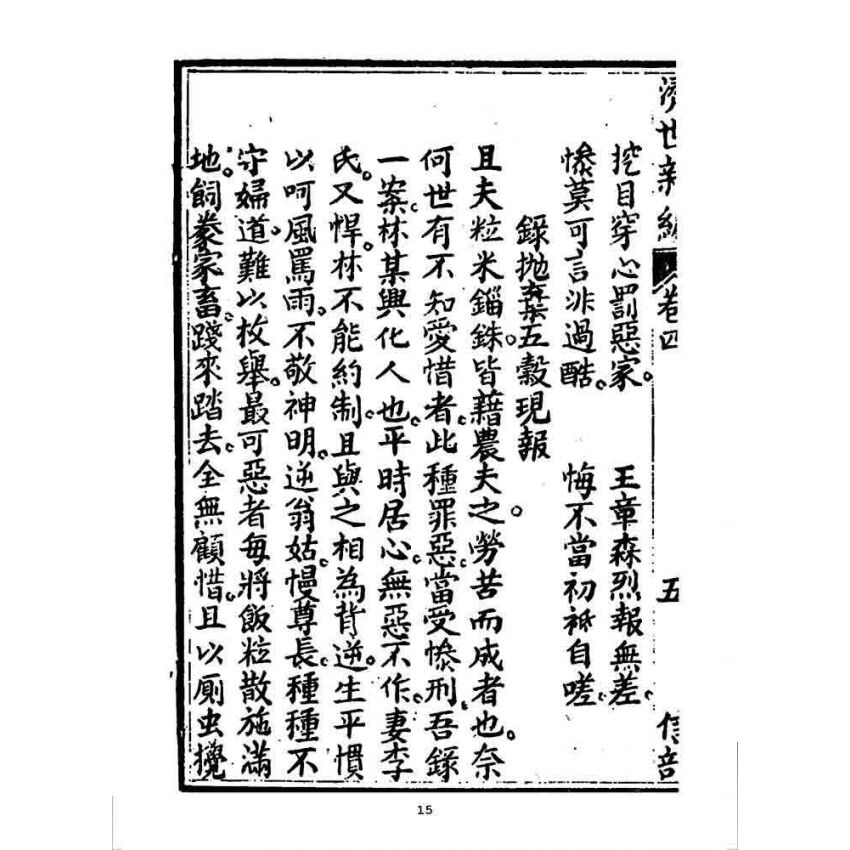 濟世新編 卷四 五 信部
挖目穿心罰惡家。 王章森烈報無差。
慘莫可言非過酷。 悔不當初祗自嗟。
錄拋棄五穀現報
且夫粒米錙銖。皆藉農夫之勞苦而成者也。奈
何世有不知愛惜者。此種罪惡。當受慘刑。吾錄
一案。林某興化人也。平時居心。無惡不作。妻李
氏。又悍。林不能約制。且與之相為背逆。生平慣
以呵風罵雨。不敬神明。逆翁姑。慢尊長。種種不
守婦道。難以枚舉。最可惡者每將飯粒散施滿
地。飼豢家畜。踐來踏去。全無顧惜。且以廁虫攪
15